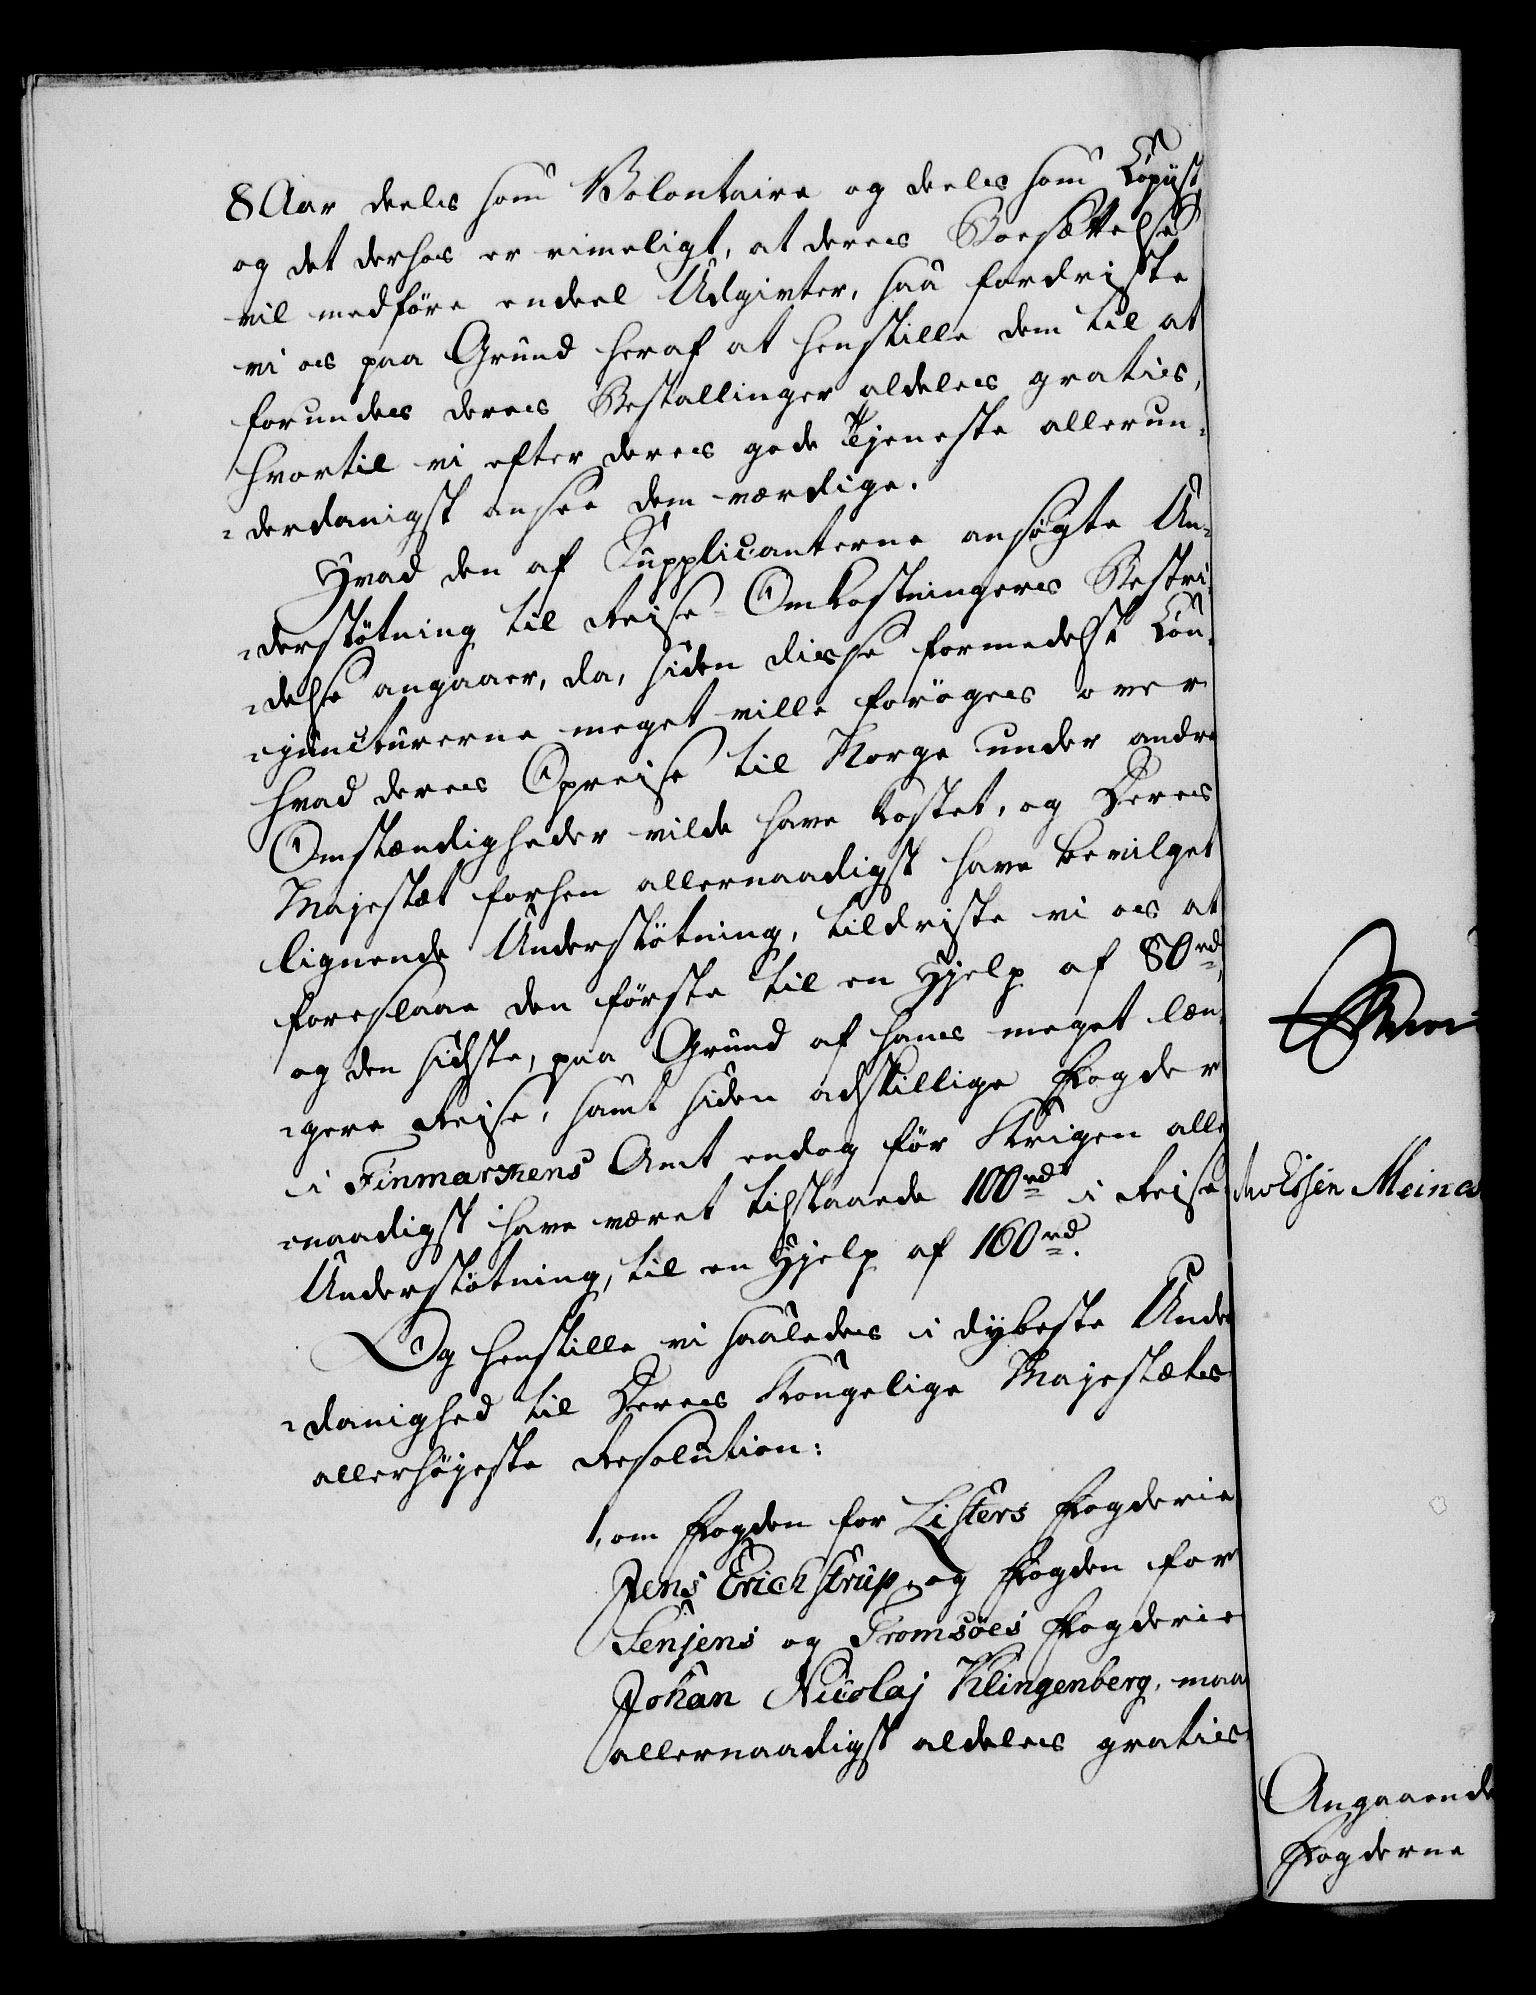 8 Aar deels som Volontaire og deels som Copiist,
og det derhos er rimeligt, at deres Boesættelse
vil medföre endeel Udgivter, saa fordriste
vi os paa Grund heraf at henstille dem til at
forundes deres Bestallinger aldeles gratis,
hvortil vi efter deres gode Tjeneste allerun-
-derdanigst ansee dem værdige.
Hvad den af Supplicanterne ansøgte Un-
-derstötning til Reise-Omkostningers Bestri-
-delse angaaer, da, siden disse formedelst Con-
-juncturerne meget ville forøges over
hvad deres Opreise til Norge under andre
Omstændigheder vilde have kostet, og Deres
Majestæt forhen allernaadigst have bevilget
lignende Understötning, tildriste vi os at
foreslaae den förste til en Hjelp af 80 rd
og den sidste, paa Grund af hans meget læn-
-gere Reise, samt siden adskillige Fogder
i Finmarkens Amt endog för Krigen aller
-naadigst have været tilstaaede 100 rd i Reise
Understötning, til en Hjelp af 160 rd.
Og henstille vi saaledes i dybeste Under
-danighed til Deres Kongelige Majestæts
allerhöjeste Resolution:
1, om Fogden for Listers Fogderie
Jens Erichstrup, og Fogden for
Senjens og Tromsöes Fogderie
Johan Nicolaj Klingenberg, maa
allernaadigst aldeles gratis
Meina
Angaaende
Fogderne